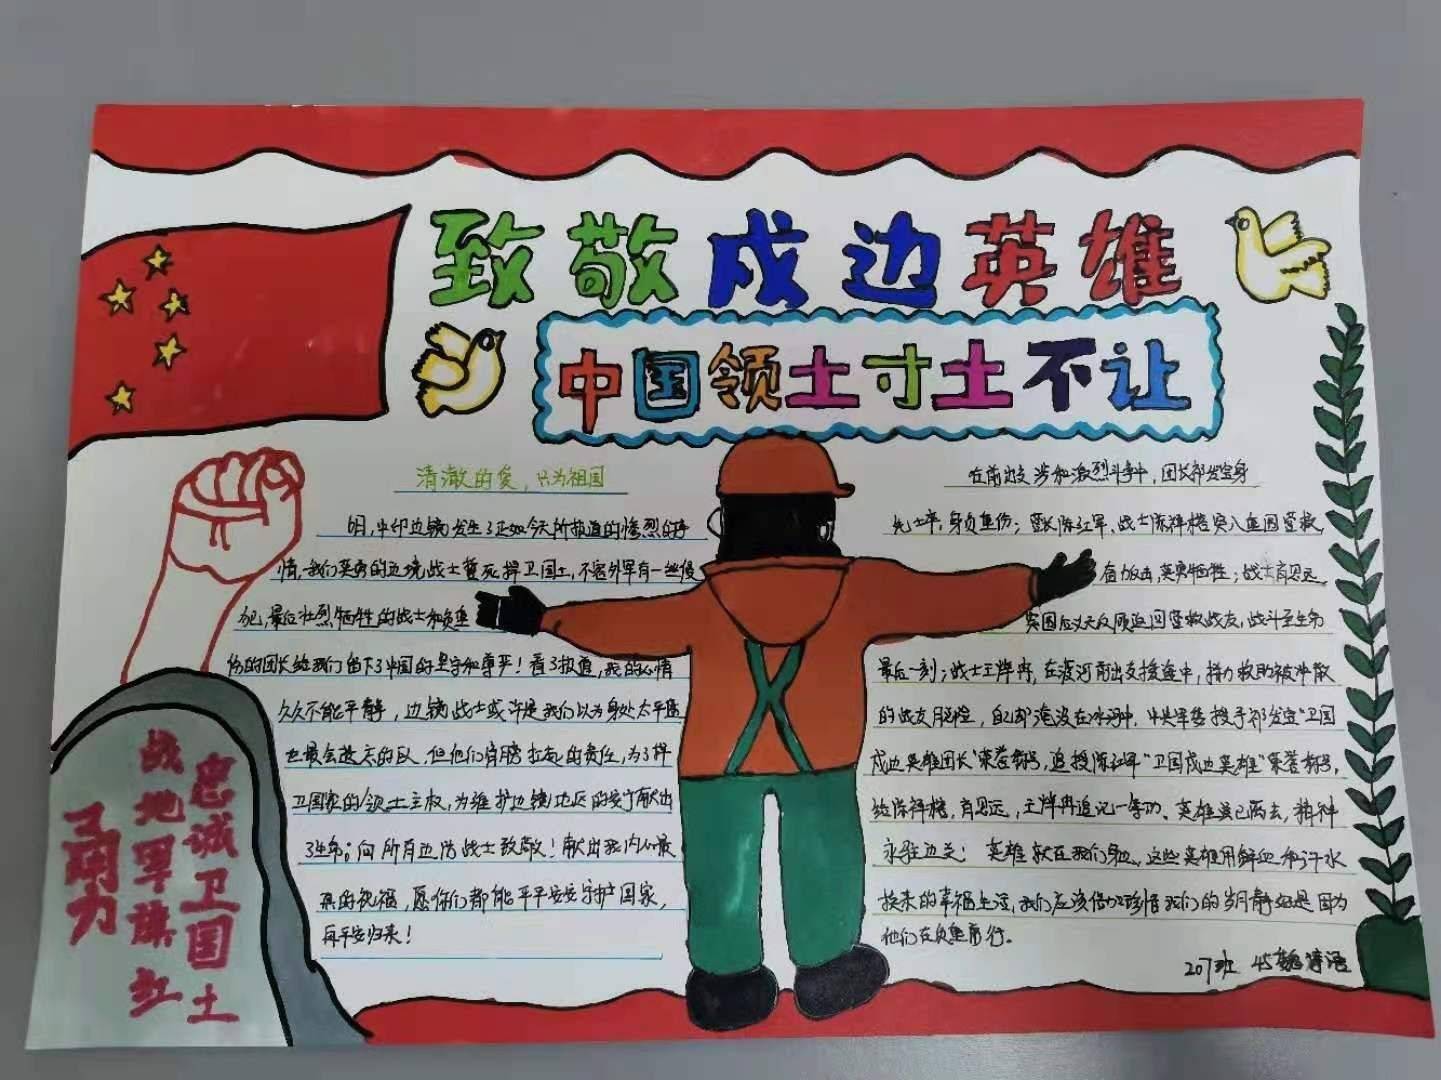 致敬戍边英雄
中国领土寸土不让
清澈的爱，只为祖国
日，中印边境发生了正如今天所报道的惨烈的事
情，我们英勇的边境战士誓死捍卫国土，不容外军有一丝侵
犯，最后壮烈牺牲的战士和负重
伤的团长给我们留下了中国的坚守和尊严！看了报道，我的心情
久久不能平静，边境战士或许是我们以为身处太平盛
也最会逃忘的队，但他们肩膀扛起的责任，为了捍
卫国家的领土主权，为维护边境地区的安宁献出
了生命。向所有边防战士致敬！献出我内心最
真的祝福，愿你们都能平平安安守护国家，
再平安归来！
在前出交涉和激烈斗争中，团长祁发宝身
先士卒，身负重伤；营长陈红军、战士陈祥榕突入重围营救，
奋力反击，英勇牺牲；战士肖思远，
突围后义无反顾返回营救战友，战斗至生命
最后一刻；战士王焯冉，在渡河前出支援途中，拼力救助被冲散
的战友脱险，自己却淹没在冰河中。中央军委授予祁发宝“卫国
戍边英雄团长”荣誉称号，追授陈红军“卫国戍边英雄”荣誉称号，
给陈祥榕，肖思远，王焯冉追记一等功。英雄虽已离去，精神
永驻边关！英雄就在我们身边，这些英雄用鲜血和汗水
换来的幸福生活，我们应该倍加珍惜我们的岁月静好是因为
他们在负重前行。
207班 45魏
忠诚卫国土
战地军旗红